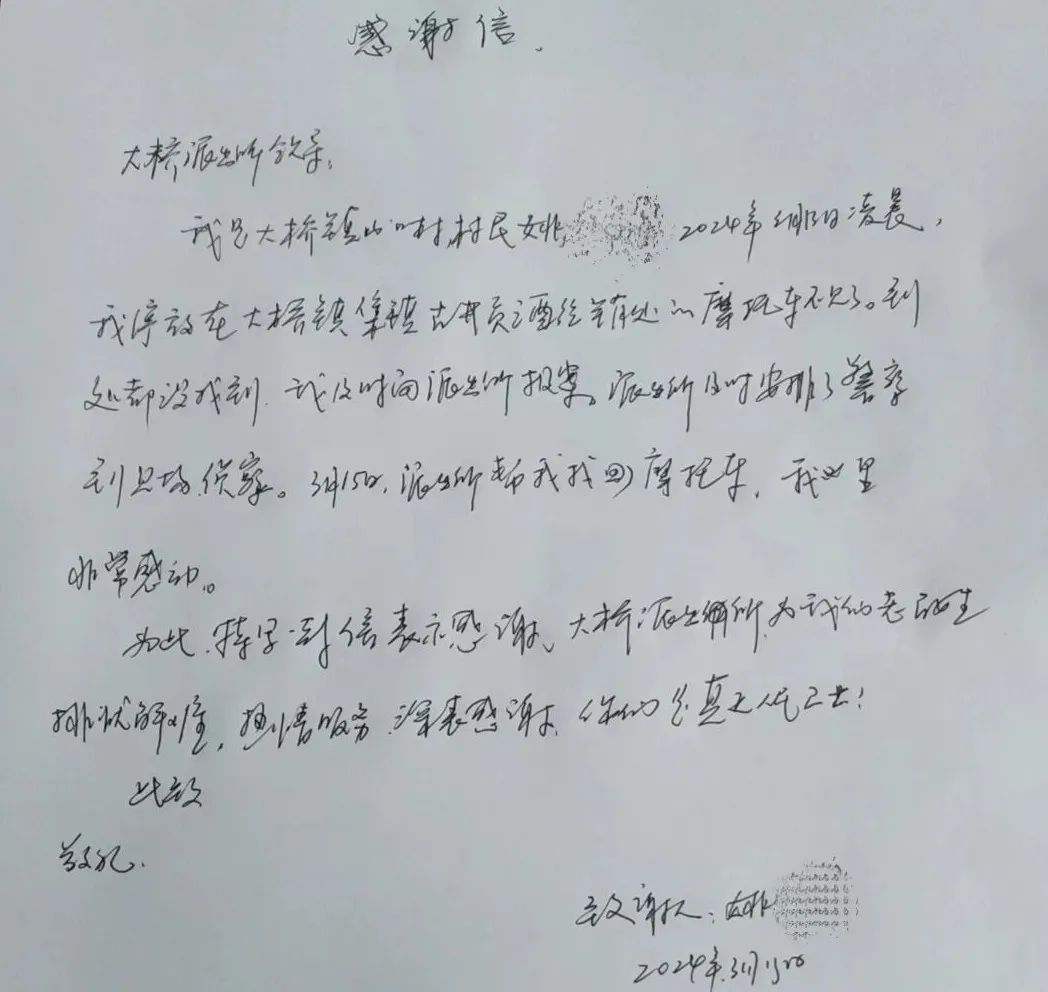 感谢信.
大桥派出所领导:
我是大桥镇山 村,村民姚 2024年3月 日凌晨,
我停放在大桥镇集镇古井贡酒 处的摩托车不见了。到
处都没找到.我及时向派出所报案。派出所及时安排了警察
到现场侦察。3月15日,派出所帮我找回摩托车,我心里
非常感动。
为此,特写 信表示感谢,大桥派出所为我们老百姓
排忧解难,热情服务.深表感谢,你们 真 人民卫士!
此致
敬礼.
致谢人:姚
2024年.3月15日